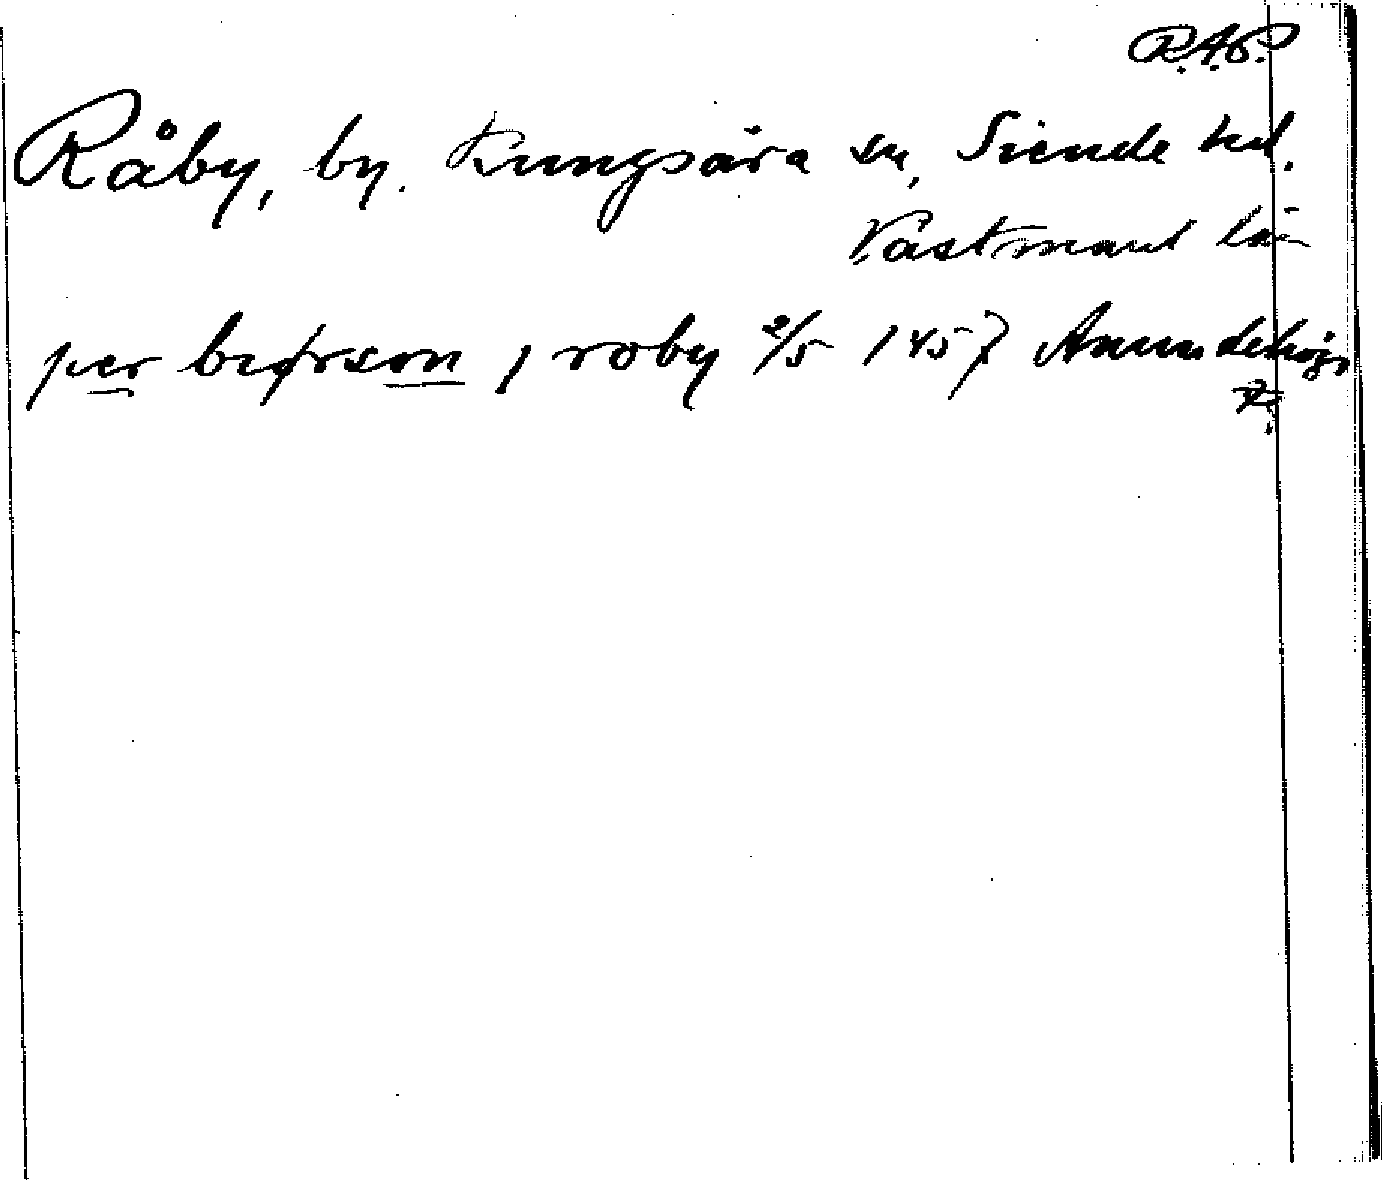 R.A.P.
Råby, by. Kungsåra sn, Siende hd.
Västmanl län
per biørson j roby 2/5 1457 Anundshög